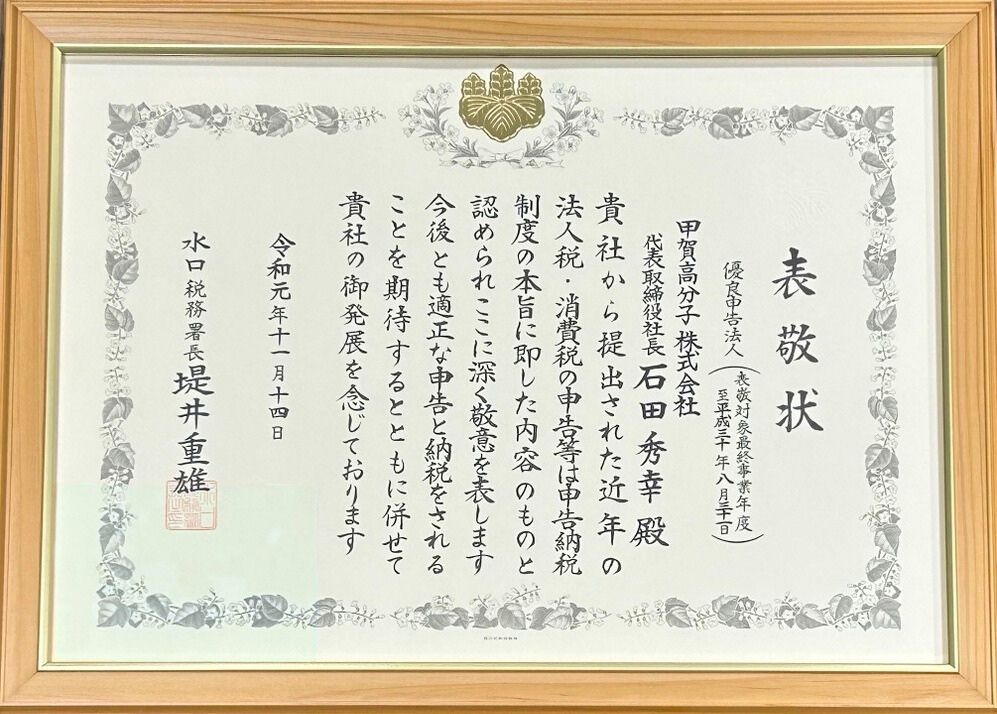 表敬状
優良申告法人
(表敬対象最終事業年度
至平成三十年八月三十一日)
甲賀高分子株式会社
代表取締役社長 石田秀幸殿
貴社から提出された近年の
法人税・消費税の申告等は申告納税
制度の本旨に即した内容のものと
認められここに深く敬意を表します
今後とも適正な申告と納税をされる
ことを期待するとともに併せて
貴社の御発展を念じております
令和元年十一月十四日
水口税務署長 堤井重雄